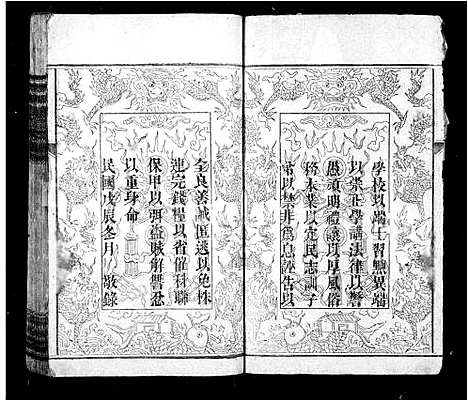 學校以端士習黜異端
以崇正學講法律以警
愚頑明禮讓以厚風俗
務本業以定民志訓子
弟以禁非爲息誣告以
全良善誡匿逃以免株
連完錢糧以省催科聯
保甲以弭盜賊解讐忿
以重身命
民國戊辰冬月 敬錄